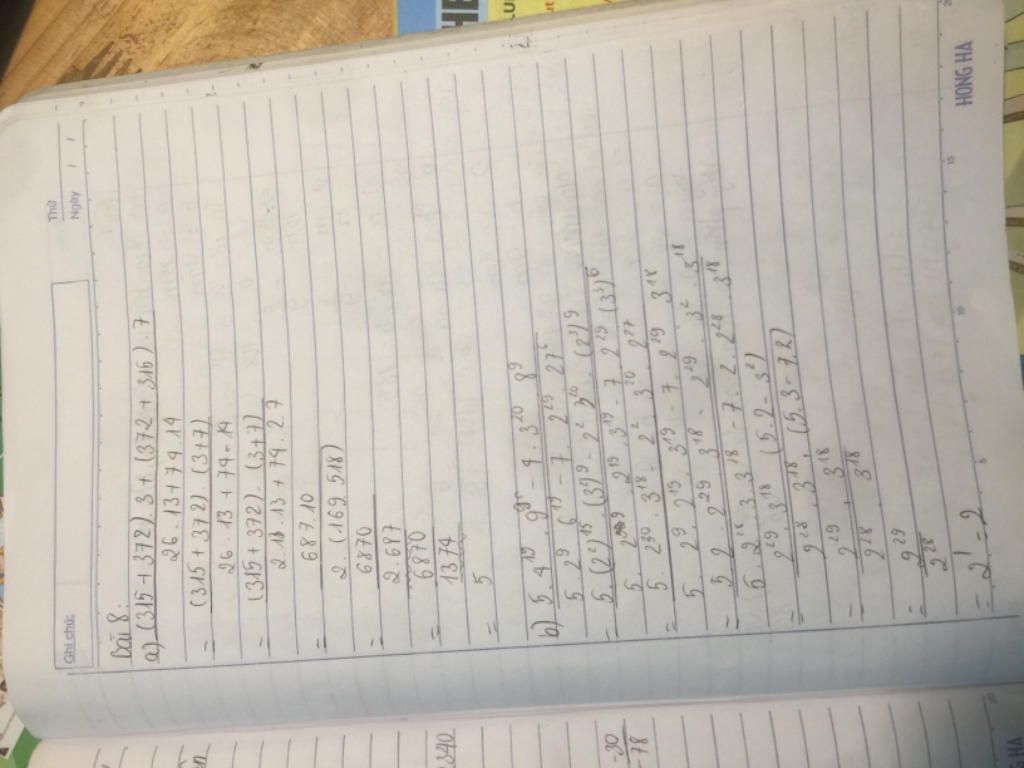 Thứ
Ngày / /
Ghi chú:
Bài 8:
a) (315 + 372) . 3 + (372 + 315) . 7
26 . 13 + 74 . 14
= (315 + 372) (3+7)
26 . 13 + 74 . 14
= (315 + 372) . (3+7)
2 . 13 . 13 + 74 . 2 . 7
= 687 . 10
2 . (169 518)
= 6870
2 . 687
= 6870
1374
= 5
b) 5 . 4^15 . 9^9 - 4 . 3^20 . 8^9
5 . 2^9 . 6^19 - 7 . 2^29 . 27^6
= 5 . (2^2)^15 . (3^2)^9 - 2^2 . 3^20 . (2^3)^9
5 . 2^9 . 2^19 . 3^19 - 7 . 2^29 (3^3)^6
= 5 . 2^30 . 3^18 . 2^2 . 3^20 . 2^27
5 . 2^9 . 2^19 . 3^19 - 7 . 2^29 . 3^18
= 5 . 2 . 2^29 . 3^18 - 2^29 . 3^2 . 3^18
5 . 2^28 . 3 . 3^18 - 7 . 2 . 2^28 . 3^18
= 2^29 . 3^18 . (5 . 2 - 3^2)
2^28 . 3^18 . (5 . 3 - 7.2)
= 2^29 . 3^18
2^28 . 3^18
= 2^29
2^28
= 2^1 = 2
HONG HA